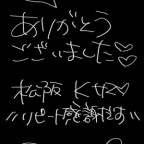 ありがとう
ございました♡
松阪 Kサマ♡
〃リピート感謝です〃